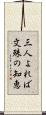 三人よれば
文殊の知恵